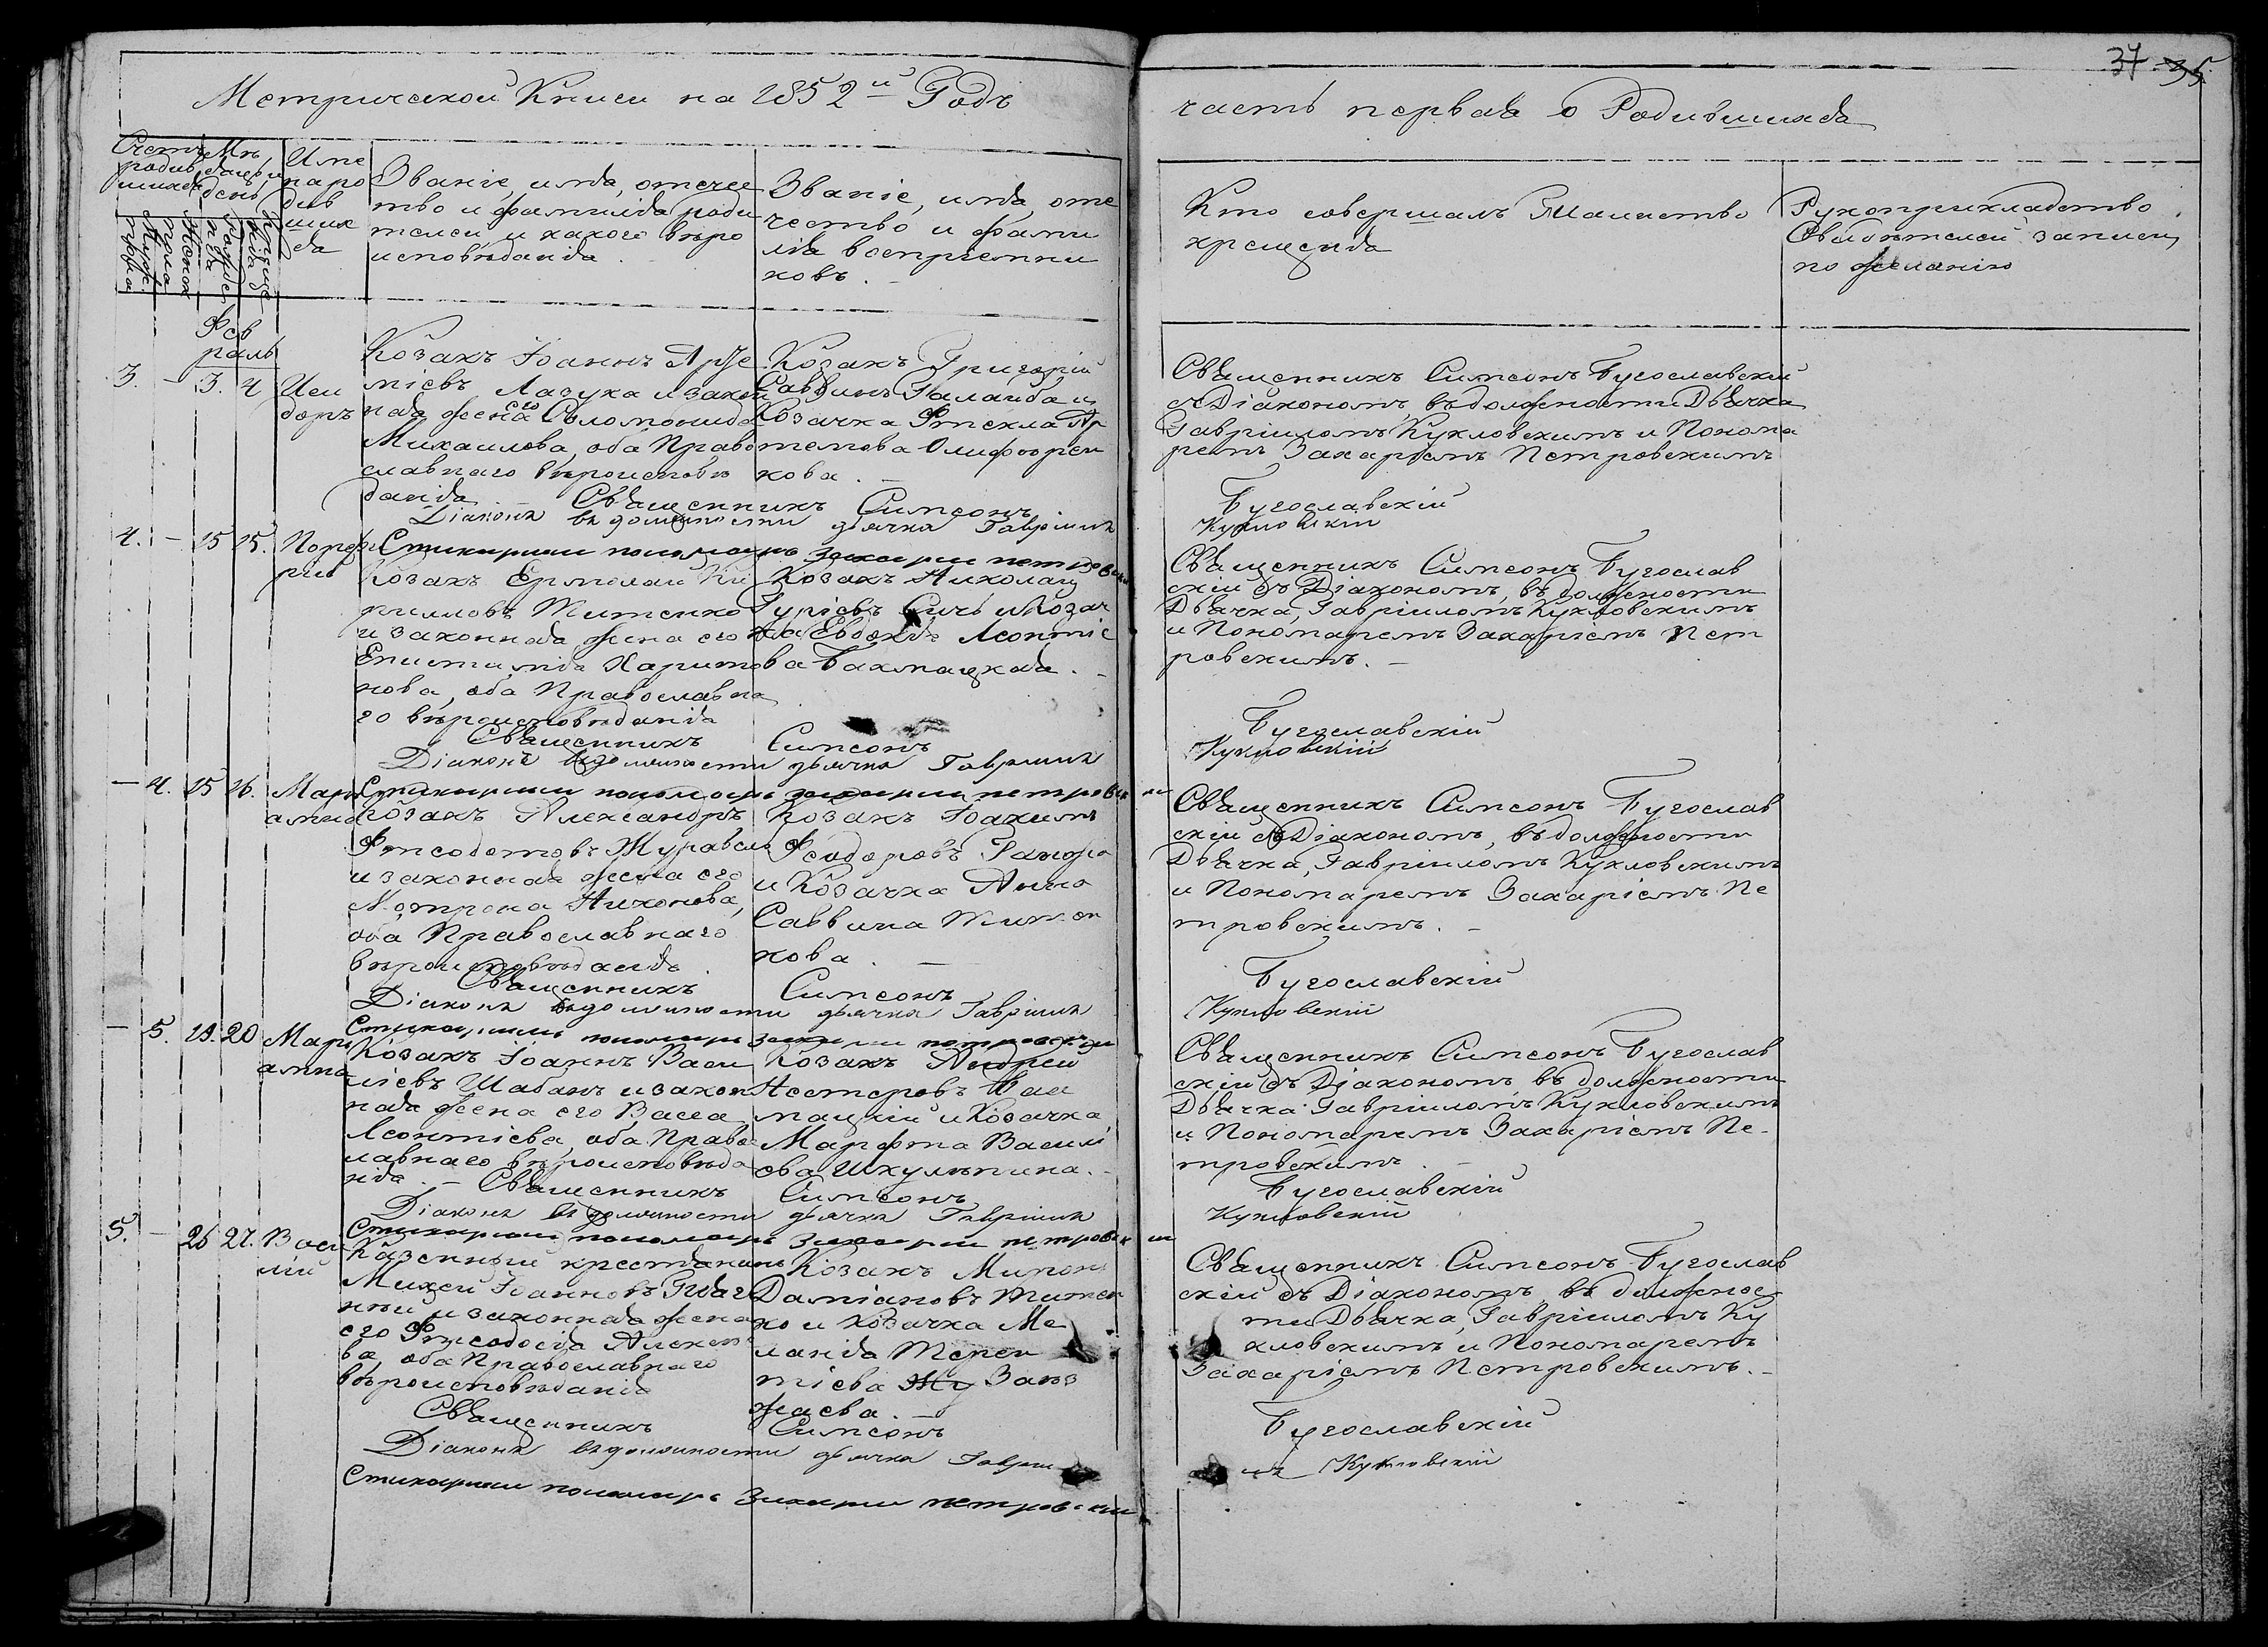 37 35
Метрической Книги на 1852й Годъ
часть первая о Родившихся
Счетъ родив шихся
Мѣ сяцъ и день
Име на ро див ших ся
Званіе, имя, отчес
тво и фамилія роди
телей и какого вѣро
исповѣданія.
Званіе, имя, оте
чество и фами
лія воспріемни
ковъ.
Кто совершалъ Таинство
крещенія
Рукоприкладство
Свидѣтелей записи
по желанію
Фев
раль
3. - 3. 4
Иси
доръ
Козакъ Іоаннъ Арте
міевъ Лазука и закон
ная жена его Соломонида
Михаилова, оба Право
славнаго вѣроисповѣ
данія.
Козакъ Григорій
Саввинъ Галайда и
Козачка Фтекла Ар
темова Олифорен
кова. -
Священникъ Симеонъ Бугославскій
съ Діакономъ, въ должности Дьячка
Гавріиломъ Кукловскимъ и Понома
ремъ Захаріемъ Петровскимъ
Священникъ Симеонъ Бугославскій
Діаконъ въ должности дьячка Гавріилъ Кукловскій
Стихарный пономарь Захарій Петровскій
4. - 15 15.
Порфи
рій
Козакъ Ермолай Ки
рилловъ Титенко
и законная жена его
Епистимія Харито
нова, оба Православна
го вѣроисповѣданія
Козакъ Николай
Гуріевъ Сичь и Козач
ка Евдокія Леонтіе
ва Бахмацкая. -
Священникъ Симеонъ Бугослав
скій съ Діакономъ, въ должности
Дьячка, Гавріиломъ Кукловскимъ
и Пономаремъ Захаріемъ Пет
ровскимъ. -
Священникъ Симеонъ Бугославскій
Діаконъ въ должности дьячка Гавріилъ Кукловскій
Стихарный пономарь Захарій Петровскій
- 4. 15 16.
Марі
амна
Козакъ Александръ
Фтеодотовъ Журавель
и законная жена его
Мотрона Никонова,
оба Православнаго
вѣроисповѣданія.
Козакъ Іоакимъ
Феодоровъ
и Козачка Анна
Саввина Титен
кова. -
Священникъ Симеонъ Бугослав
скій съ Діакономъ, въ должности
Дьячка, Гавріиломъ Кукловскимъ
и Пономаремъ Захаріемъ Пе
тровскимъ. -
Священникъ Симеонъ Бугославскій
Діаконъ въ должности дьячка Гавріилъ Кукловскій
Стихарный пономарь Захарій Петровскій
- 5. 19. 20
Марі
амна
Козакъ Іоаннъ Васи
ліевъ Шабанъ и закон
ная жена его Васса
Леонтіева, оба Правос
лавнаго вѣроисповѣда
нія. -
Козакъ Андрей
Нестеровъ Бах
мацкій и Козачка
Марфта Василі
ева Шкулѣпина. -
Священникъ Симеонъ Бугослав
скій съ Діакономъ, въ должности
Дьячка Гавріиломъ Кукловскимъ
и Пономаремъ Захаріемъ Пе-
тровскимъ. -
Священникъ Симеонъ Бугославскій
Діаконъ въ должности дьячка Гавріилъ Кукловскій
Стихарный пономарь Захарій Петровскій
5. - 26 27.
Васи
лій
Казенный крестьянинъ
Михей Іоанновъ
и законная жена
его Фтеодосія Алексѣе
ва, оба Православнаго
вѣроисповѣданія
Козакъ Миронъ
Даміановъ Титен
ко и Козачка Ме
ланія Терен
тіева
Священникъ Симеонъ Бугослав
скій съ Діакономъ, въ должнос
ти Дьячка, Гавріиломъ Ку
кловскимъ и Пономаремъ
Захаріемъ Петровскимъ. -
Священникъ Симеонъ Бугославскій
Діаконъ въ должности дьячка Гавріилъ Кукловскій
Стихарный пономарь Захарій Петровскій